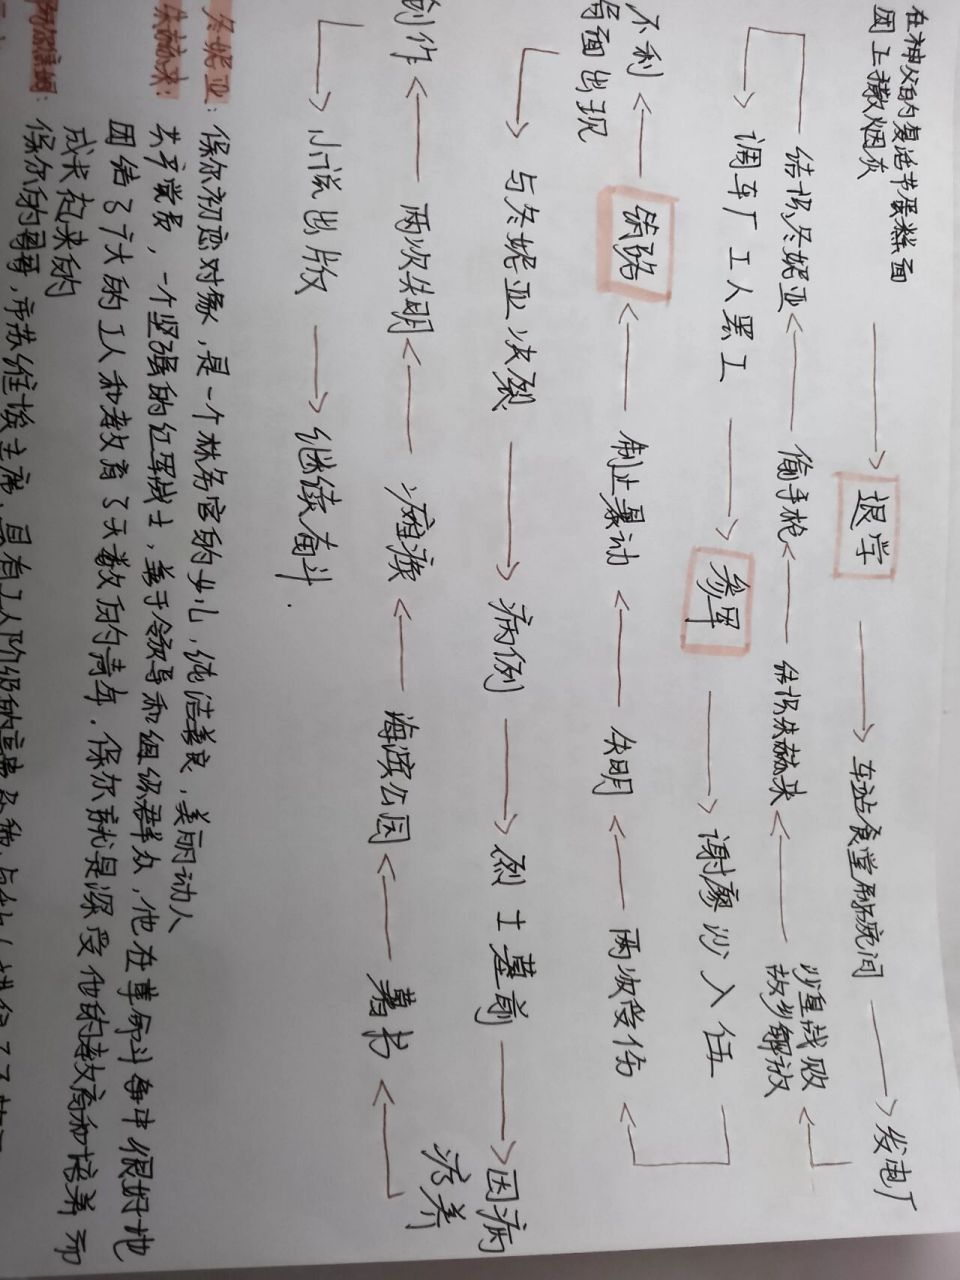 在神父的复活节蛋糕面团上撒烟灰 → 退学 → 车站食堂刷碗间 → 发电厂
结识冬妮亚 ← 偷手枪 ← 结识朱赫来 ← 沙皇战败 故乡解放
调车厂工人罢工 → 参军 → 谢廖沙入伍
不利局面出现 ← 筑路 ← 制止暴动 ← 失明 ← 两次受伤
与冬妮亚决裂 → 病例 → 烈士墓前 → 因病疗养
创作 ← 两次失明 ← 瘫痪 ← 海滨公园 ← 著书
小说出版 → 继续奋斗.
冬妮亚：保尔初恋对象，是一个林务官的女儿，纯洁善良，美丽动人
朱赫来：共产党员，一个坚强的红军战士，善于领导和组织群众，他在革命斗争中很好地
团结了广大的工人和教育了无数的青年．保尔就是深受他的教育和培养而
成长起来的
保尔的哥哥，市苏维埃主席，具有工人阶级的高贵